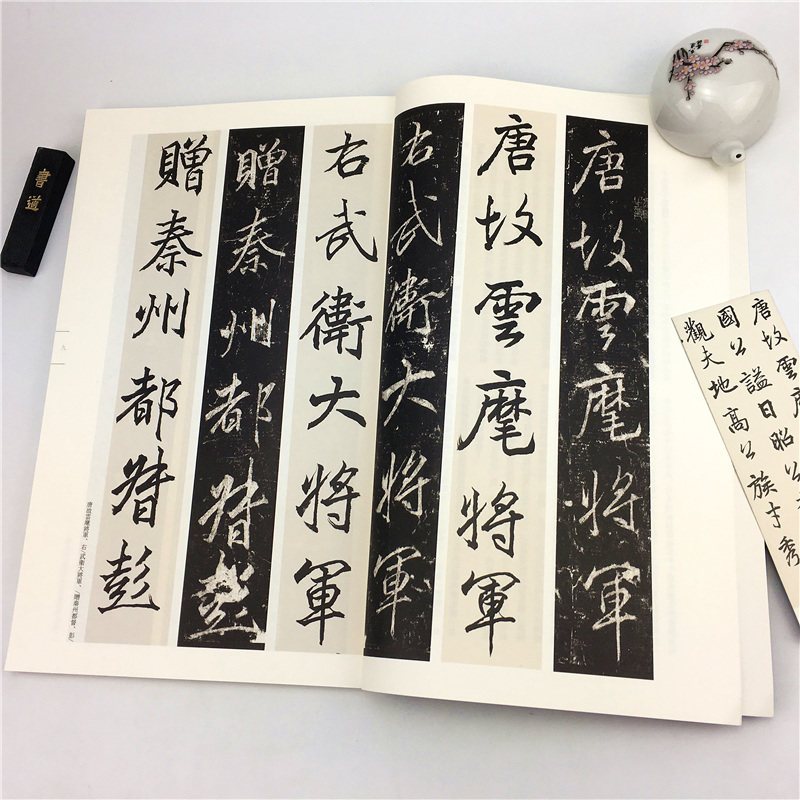 唐故雲麾將軍
唐故雲麾將軍
右武衛大將軍
右武衛大將軍
贈秦州都督彭
贈秦州都督彭
唐故雲麾將軍、右武衛大將軍、贈秦州都督、彭
九
書道
唐故雲
國公諡曰昭公
觀夫地高公族才秀